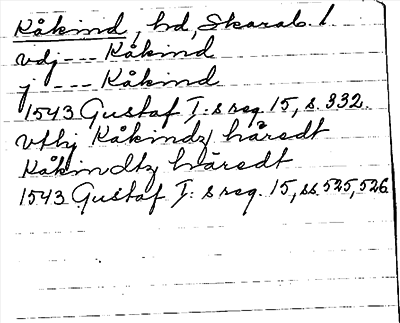 Kåkind, hd, Skarab. l
vdj --- Kåkind
j --- Kåkind
1543 Gustaf I:s reg. 15, s. 332.
vthj Kåkindz häredt
Kåkindtz häredt
1543 Gustaf I:s reg. 15, ss. 525, 526